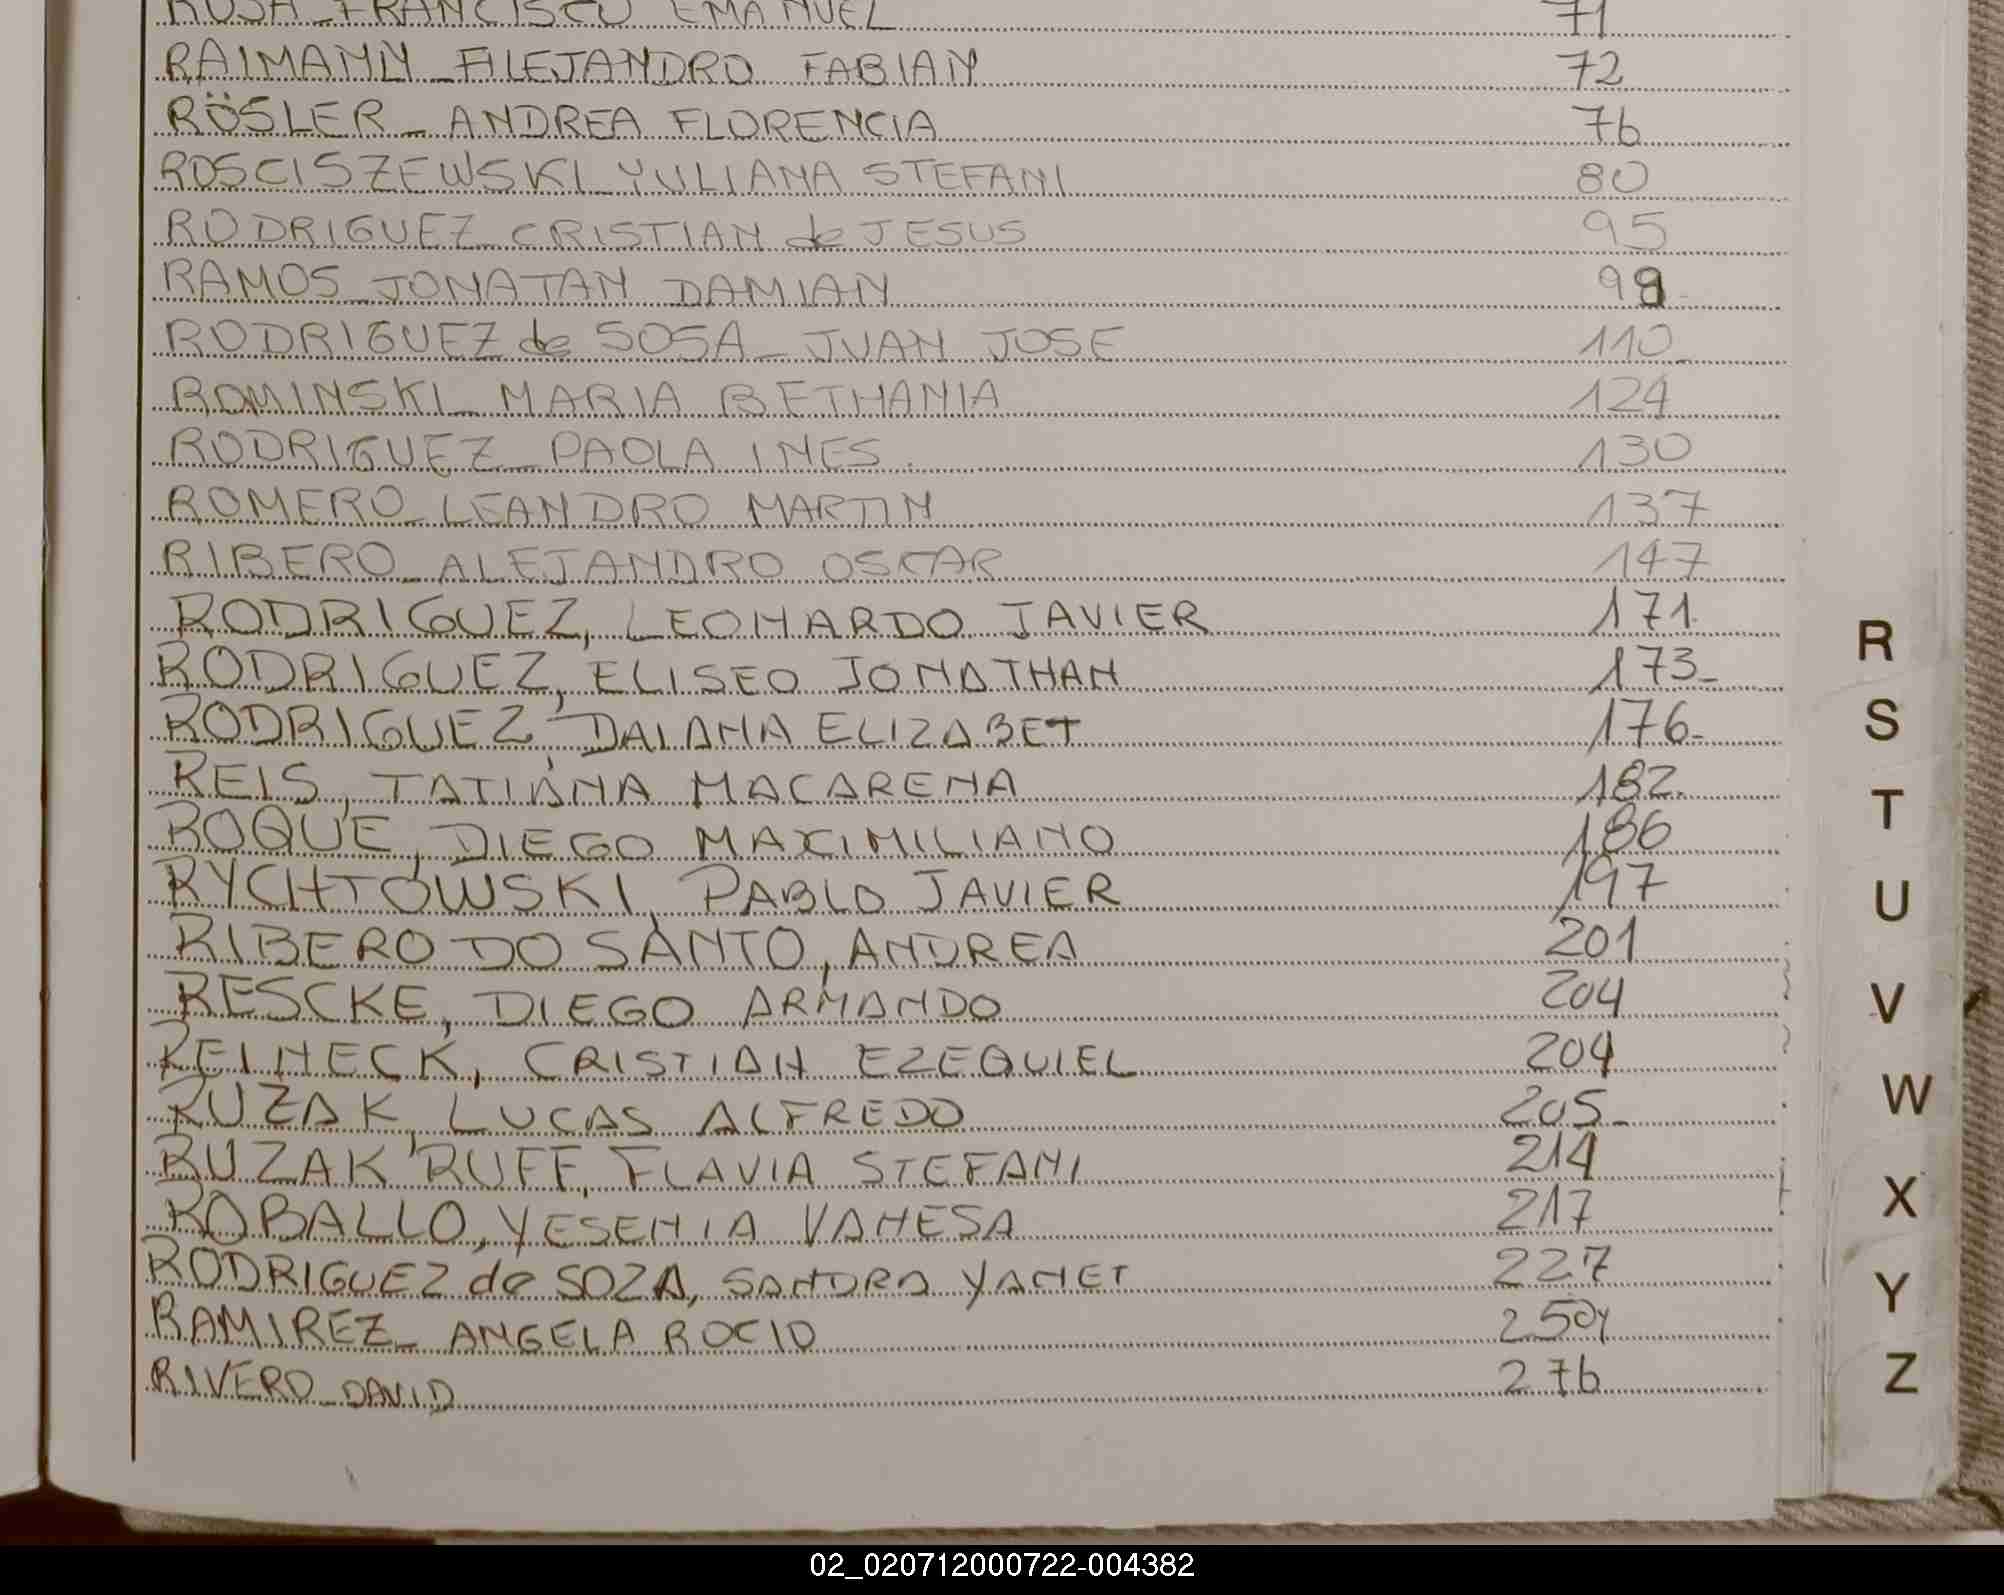 ROSA - FRANCISCO EMANUEL 71
RAIMANN - ALEJANDRO FABIAN 72
RÖSLER - ANDREA FLORENCIA 76
ROSCISZEWSKI - YULIANA STEFANI 80
RODRIGUEZ - CRISTIAN de JESUS 95
RAMOS - JONATAN DAMIAN
RODRIGUEZ de SOSA - JUAN JOSE 110
ROMINSKI - MARIA BETHANIA 124
RODRIGUEZ - PAOLA INES. 130
ROMERO - LEANDRO MARTIN 137
RIBERO - ALEJANDRO OSCAR 147
RODRIGUEZ, LEONARDO JAVIER 171
RODRIGUEZ, ELISEO JONATHAN 173-
RODRIGUEZ, DAIANA ELIZABET 176-
REIS, TATIANA MACARENA 182.
ROQUE, DIEGO MAXIMILIANO 186
RYCHTOWSKI, PABLO JAVIER 197
RIBERO DO SANTO, ANDREA 201
RESCKE, DIEGO ARMANDO 204
REINECK, CRISTIAN EZEQUIEL 204
RUZAK, LUCAS ALFREDO 205-
RUZAK RUFF, FLAVIA STEFANI 214
ROBALLO, YESENIA VANESA 217
RODRIGUEZ de SOZA, SANDRA YANET 227
RAMIREZ - ANGELA ROCIO
RIVERO - DAVID 276
R
S
T
U
V
W
X
Y
Z
02_020712000722-004382